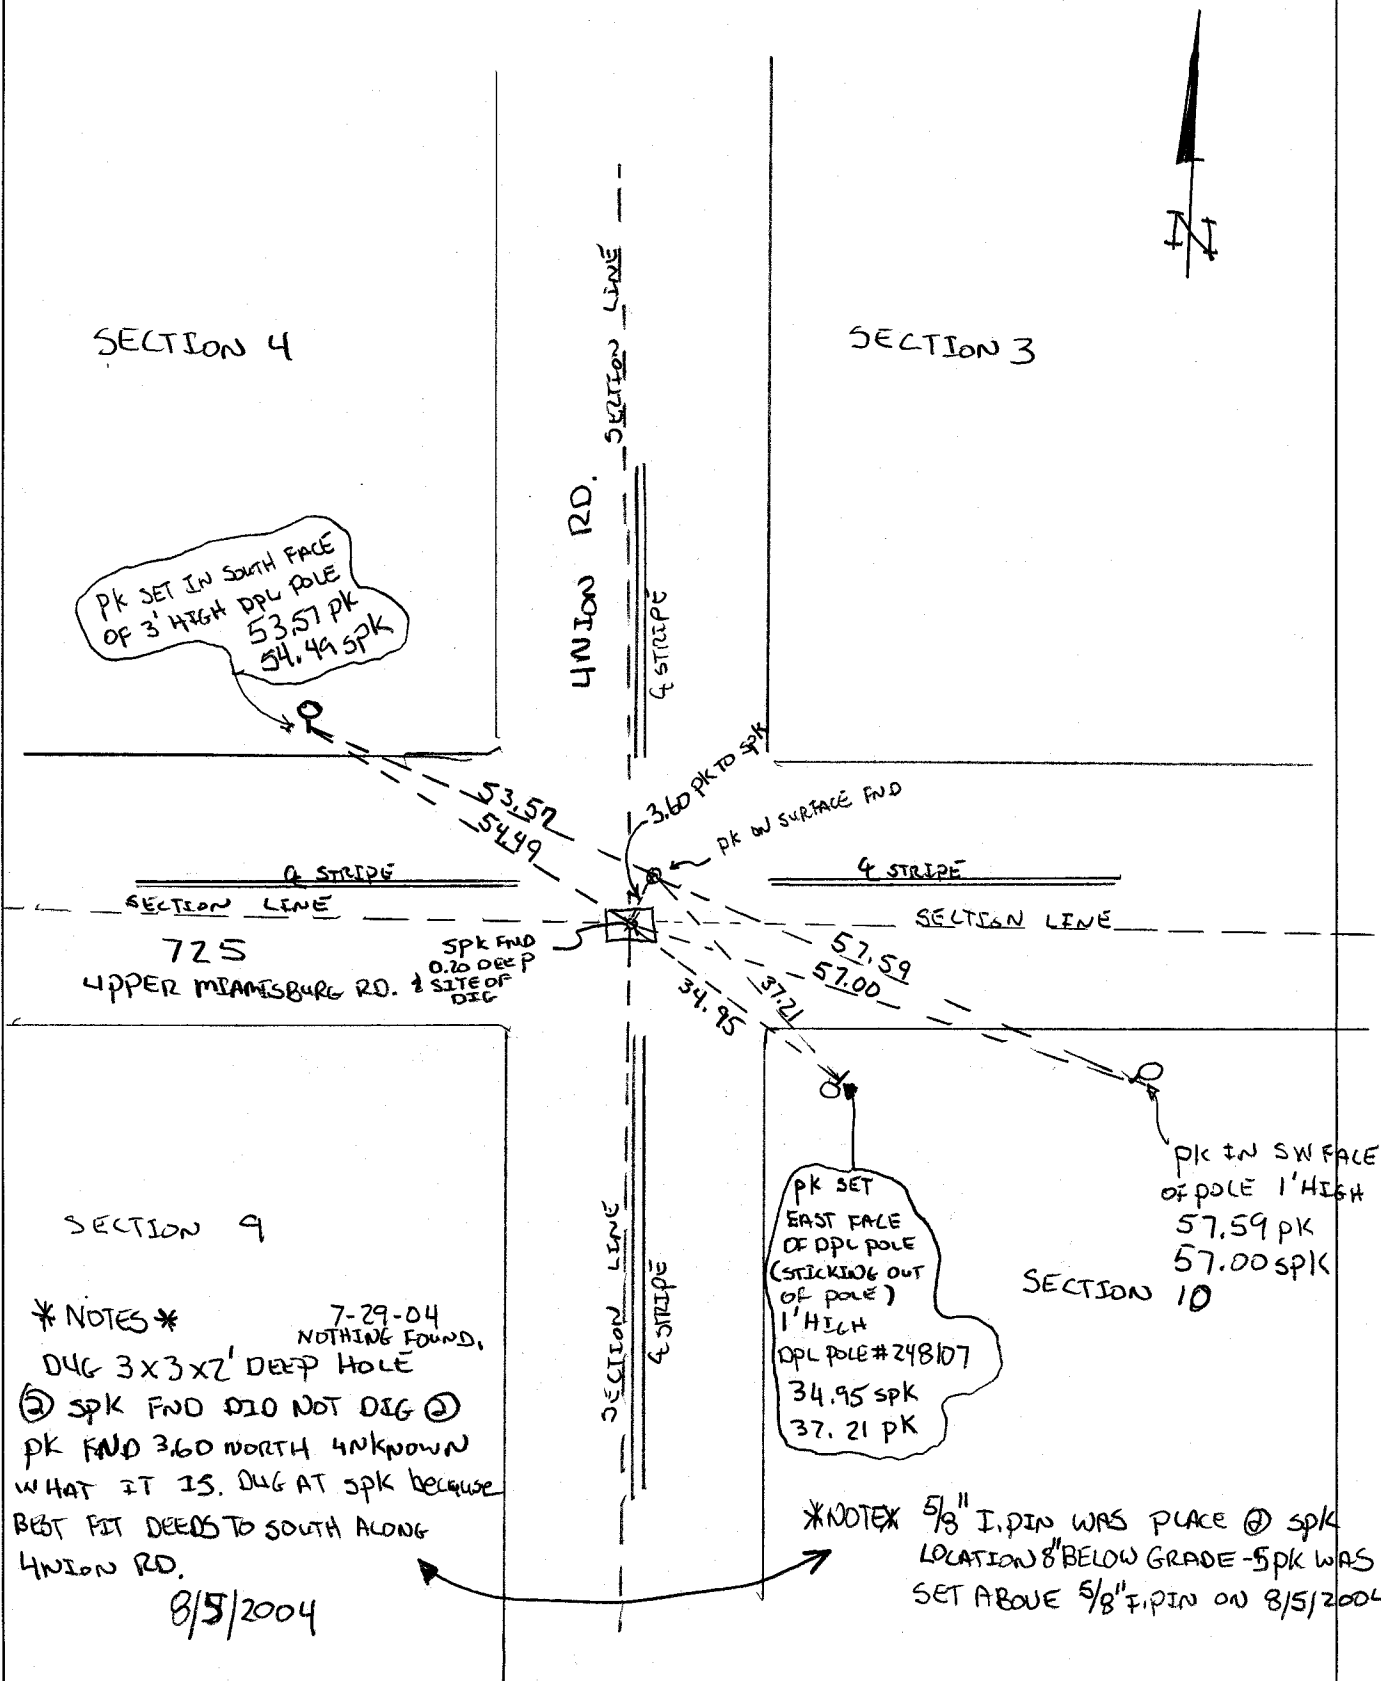 N
SECTION 4
SECTION 3
SECTION LINE
UNION RD.
℄ STRIPE
PK SET IN SOUTH FACE
OF 3' HIGH DPL POLE
53.57 PK
54.49 SPK
3.60 PK TO SPK
PK ON SURFACE FND
53.57
54.49
℄ STRIPE
SECTION LINE
℄ STRIPE
SECTION LINE
725
UPPER MIAMISBURG RD.
SPK FND
0.20 DEEP
& SITE OF
DIG
57.59
57.00
37.21
34.95
PK IN SW FACE
OF POLE 1' HIGH
57.59 PK
57.00 SPK
SECTION 10
PK SET
EAST FACE
OF DPL POLE
(STICKING OUT
OF POLE)
1' HIGH
DPL POLE # 248107
34.95 SPK
37.21 PK
SECTION LINE
℄ STRIPE
SECTION 9
* NOTES * 7-29-04
NOTHING FOUND.
DUG 3 X 3 X 2' DEEP HOLE
@ SPK FND DID NOT DIG @
PK FND 3.60 NORTH UNKNOWN
WHAT IT IS. DUG AT SPK because
BEST FIT DEEDS TO SOUTH ALONG
UNION RD.
8/5/2004
*NOTE* 5/8" I.PIN WAS PLACE @ SPK
LOCATION 8" BELOW GRADE - SPK WAS
SET ABOVE 5/8" I.PIN ON 8/5/2004